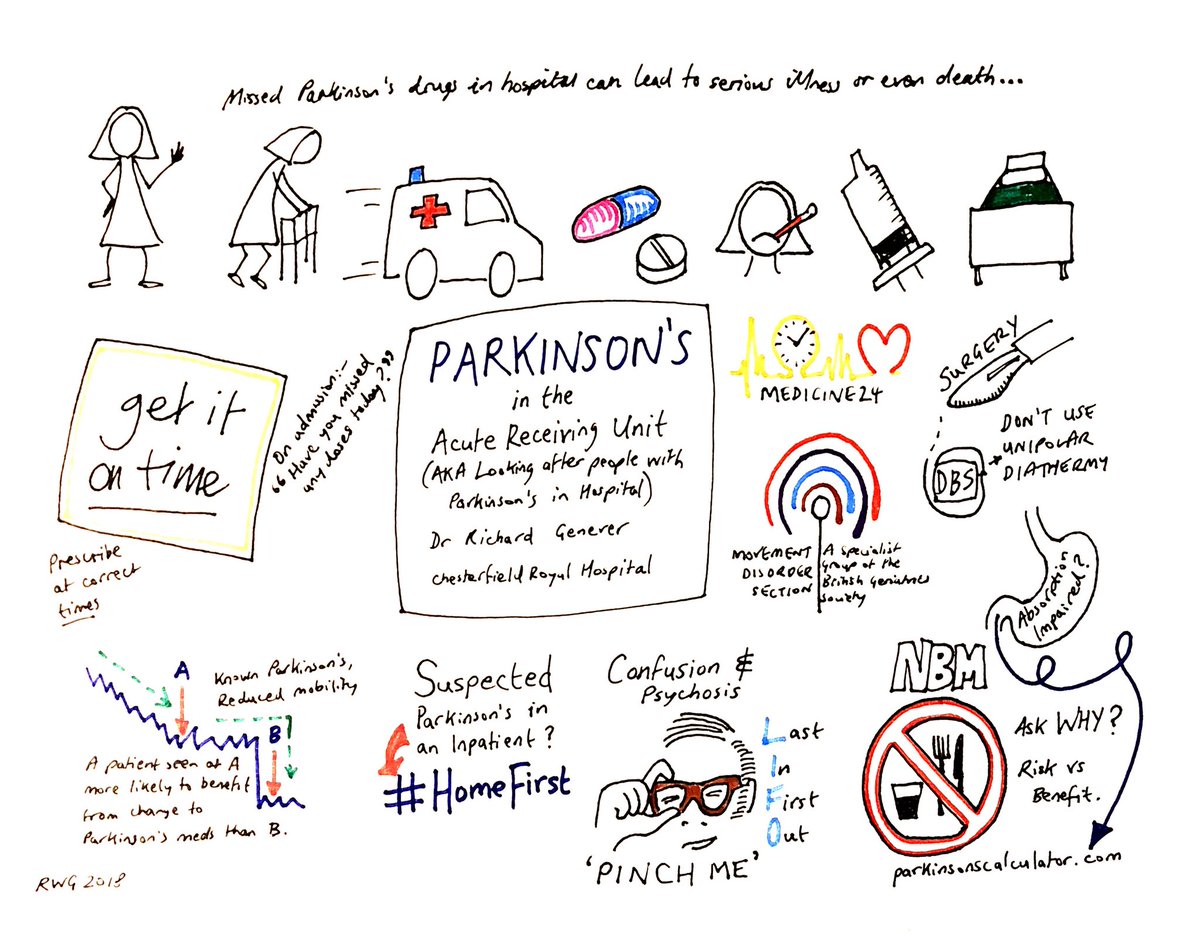 Missed Parkinson's drugs in hospital can lead to serious illness or even death...
get it
on time
Prescribe
at correct
times
On admission:-
"Have you missed
any doses today?"
PARKINSON'S
in the
Acute Receiving Unit
(AKA Looking after people with
Parkinson's in Hospital)
Dr Richard Genever
Chesterfield Royal Hospital
MEDICINE24
MOVEMENT
DISORDER
SECTION
A specialist
Group of the
British Geriatrics
Society
SURGERY
DBS
DON'T USE
UNIPOLAR
DIATHERMY
Absorption
Impaired?
A
B
Known Parkinson's,
Reduced mobility
A patient seen at A
more likely to benefit
from change to
Parkinson's meds than B.
Suspected
Parkinson's in
an Inpatient?
#HomeFirst
Confusion &
Psychosis
Last
In
First
Out
'PINCH ME'
NBM
Ask WHY?
Risk vs
Benefit.
parkinsonscalculator.com
RWG 2018